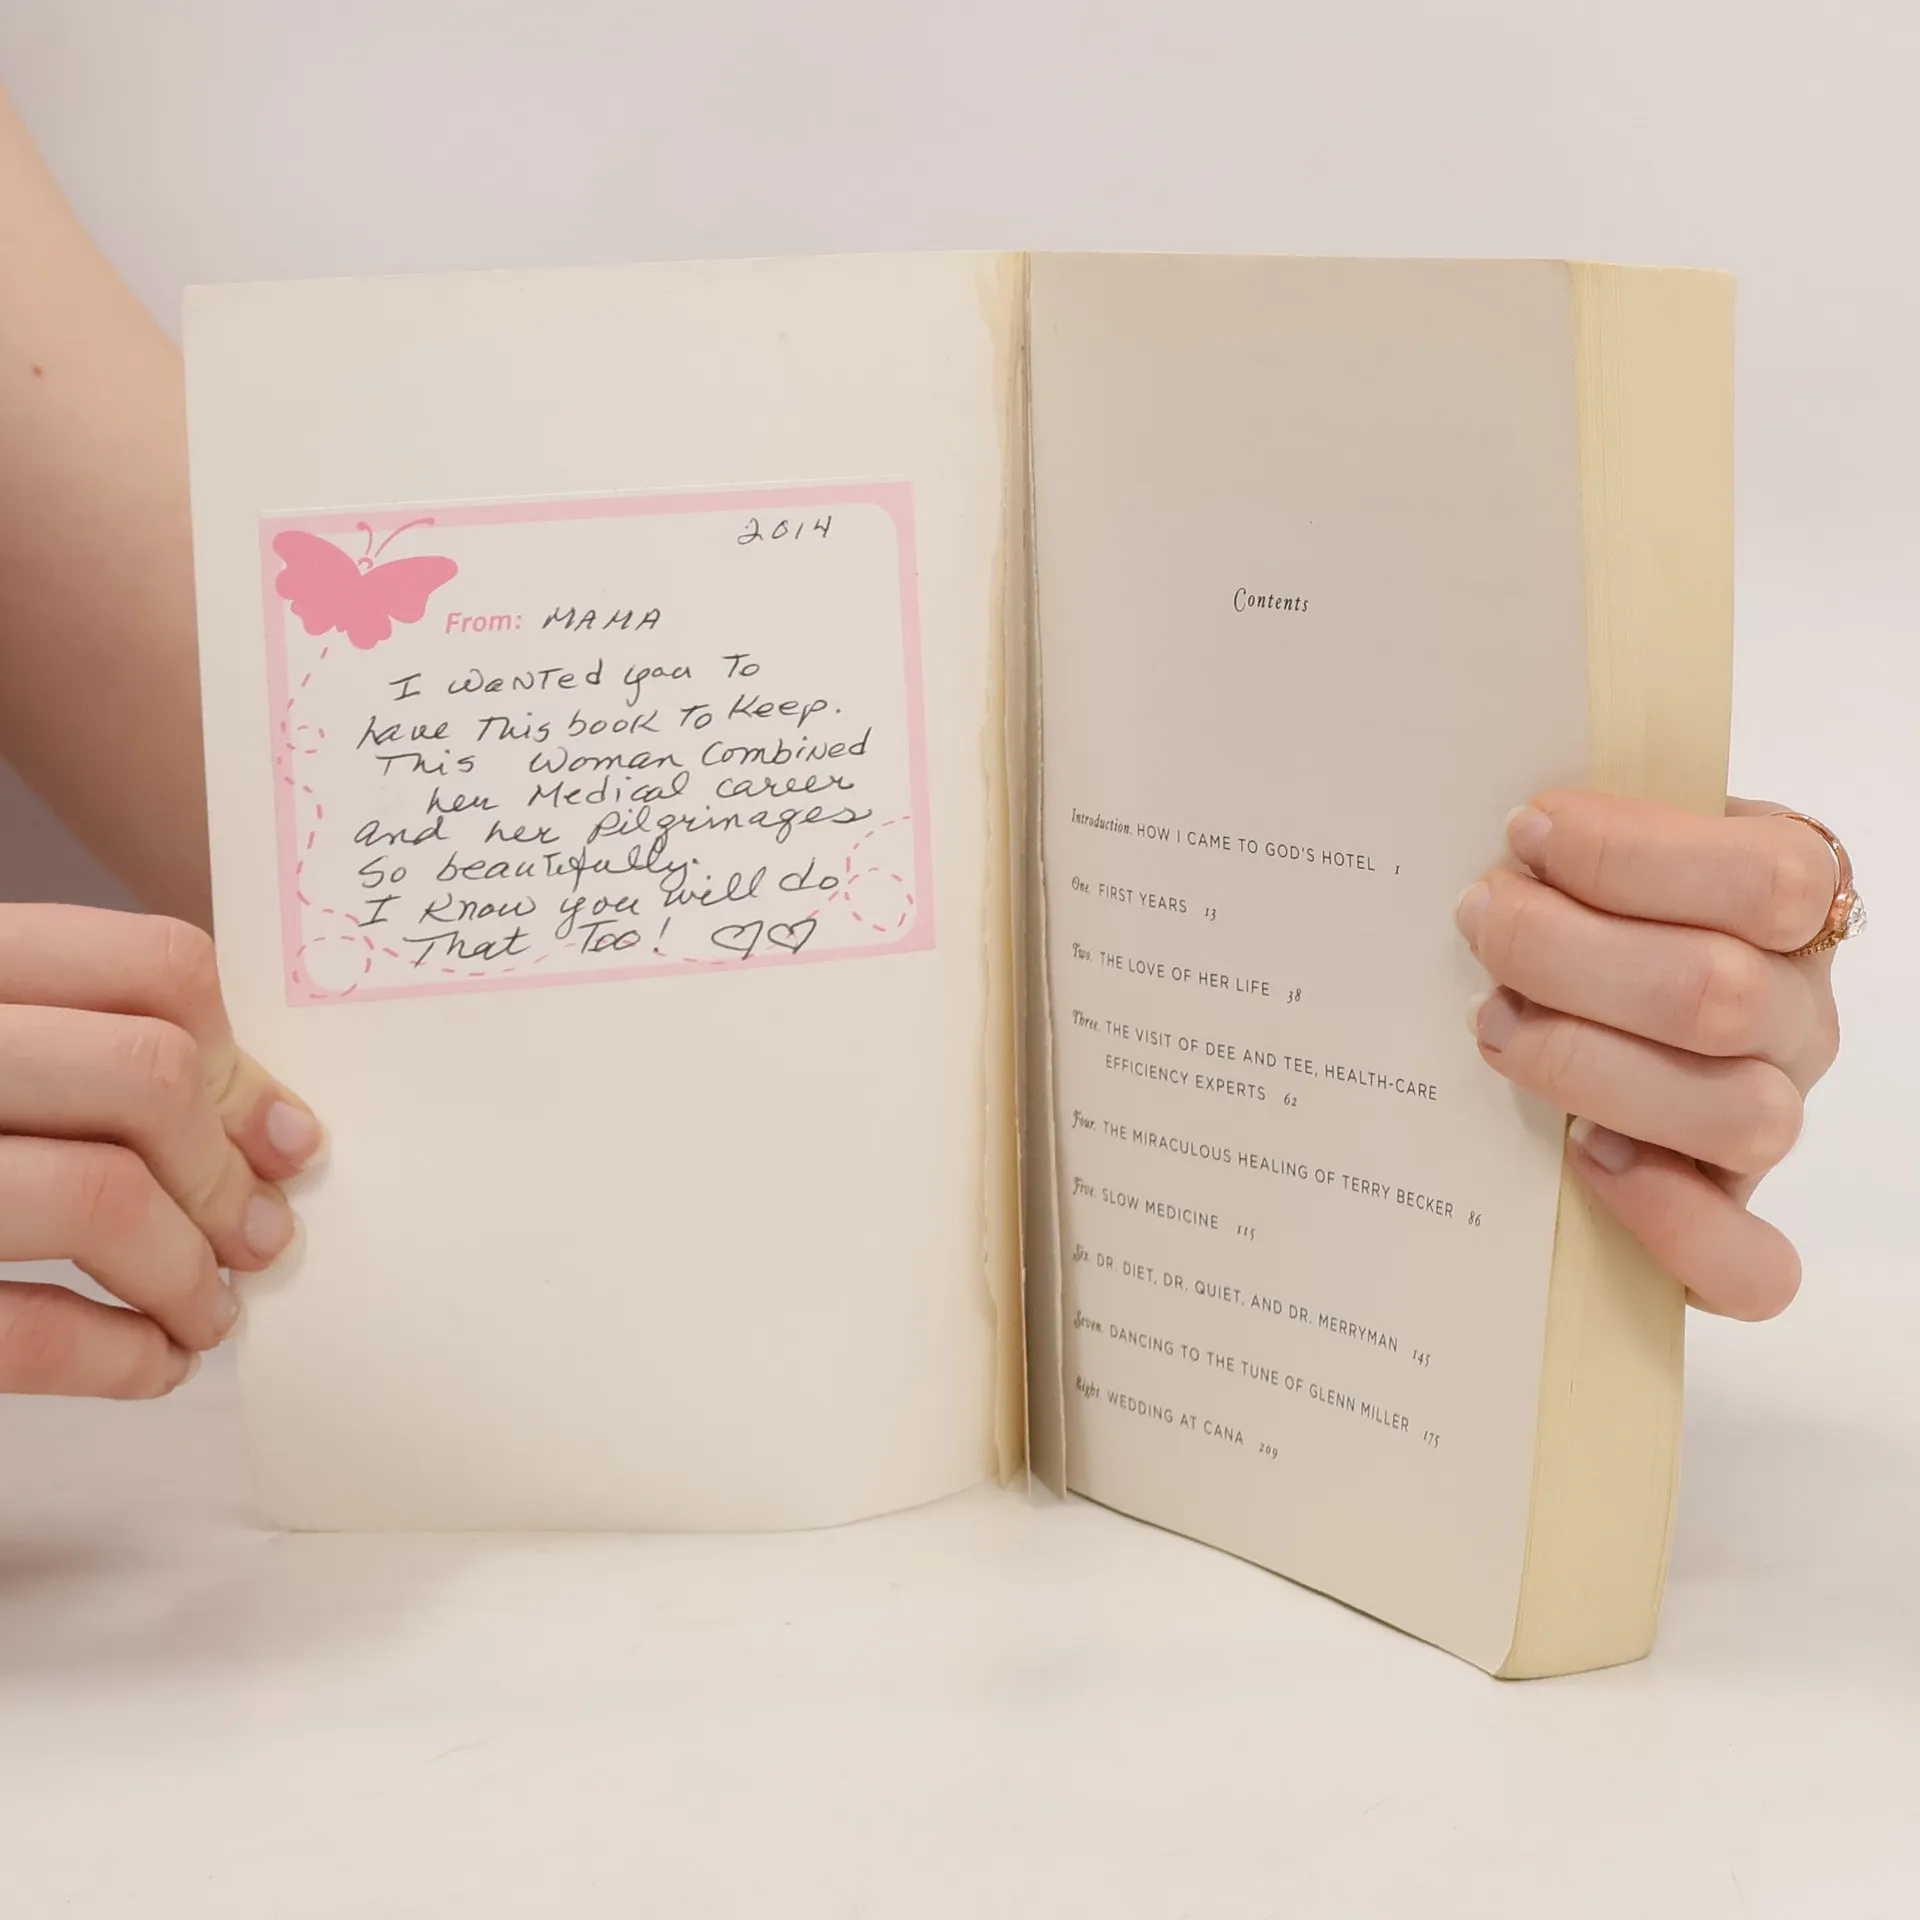 2014
From: MAMA
I wanted you To
have This book To Keep.
This Woman Combined
her Medical career
and her pilgrimages
So beautifully.
I Know you will do
That Too! ♡♡
Contents
Introduction. HOW I CAME TO GOD'S HOTEL 1
One. FIRST YEARS 13
Two. THE LOVE OF HER LIFE 38
Three. THE VISIT OF DEE AND TEE, HEALTH-CARE
EFFICIENCY EXPERTS 62
Four. THE MIRACULOUS HEALING OF TERRY BECKER 86
Five. SLOW MEDICINE 115
Six. DR. DIET, DR. QUIET, AND DR. MERRYMAN 145
Seven. DANCING TO THE TUNE OF GLENN MILLER 175
Eight. WEDDING AT CANA 209